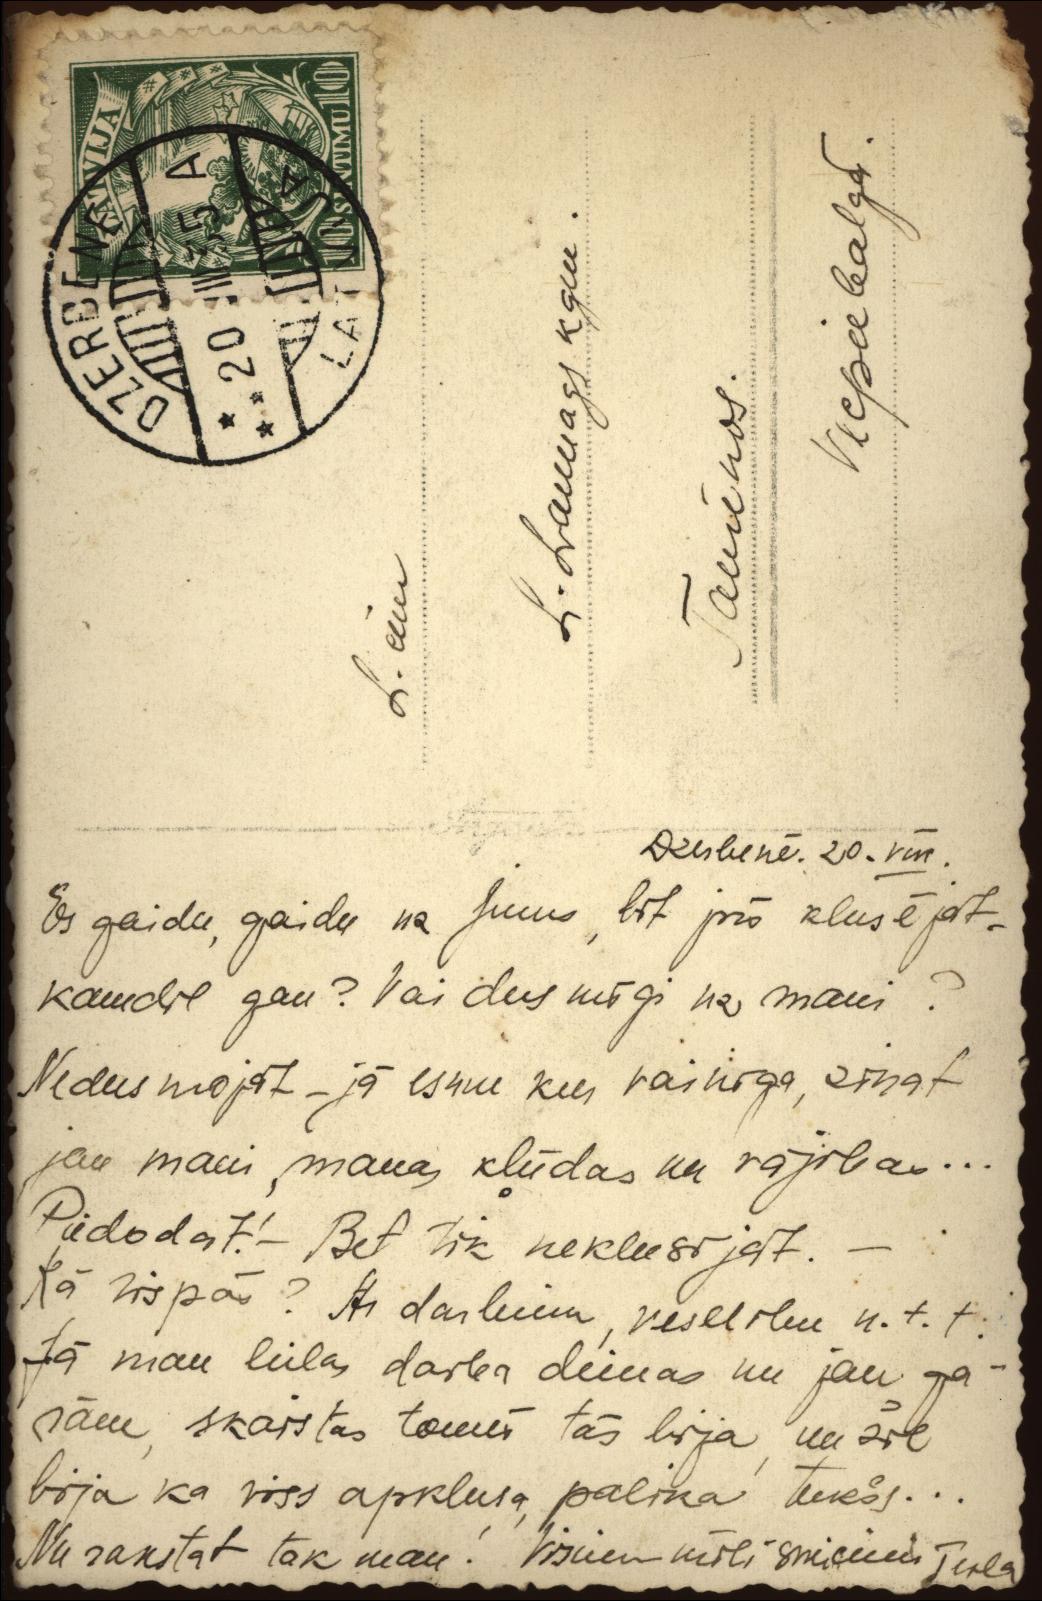 LATVIJA
10 SANTIMU 10
DZERBENE
20 VIII 35 A
LATVIJA
L. cien
L. Lamags kgu.
Tauenos.
Vecpiebalgā.
Dzerbenē. 20. VIII.
Es gaidu, gaidu uz Jums, bet jūs klusējat-
kamdēļ gan? Vai dusmīgi uz mani?
Nedusmojat - ja esmu kur vainīga, zinat
jau mani, manas kļūdas un vājības...
Piedodat! - Bet tik neklusējat. —
Kā vispār? Ar darbiem, veselību u.t.t.
Jā man lielas darba dienas nu jau ga-
rām, skaistas tomēr tās bija, un žēl
bija ka viss apklusa, palika tukšs...
Nu rakstat tak man! Visiem mīļi sveicieni